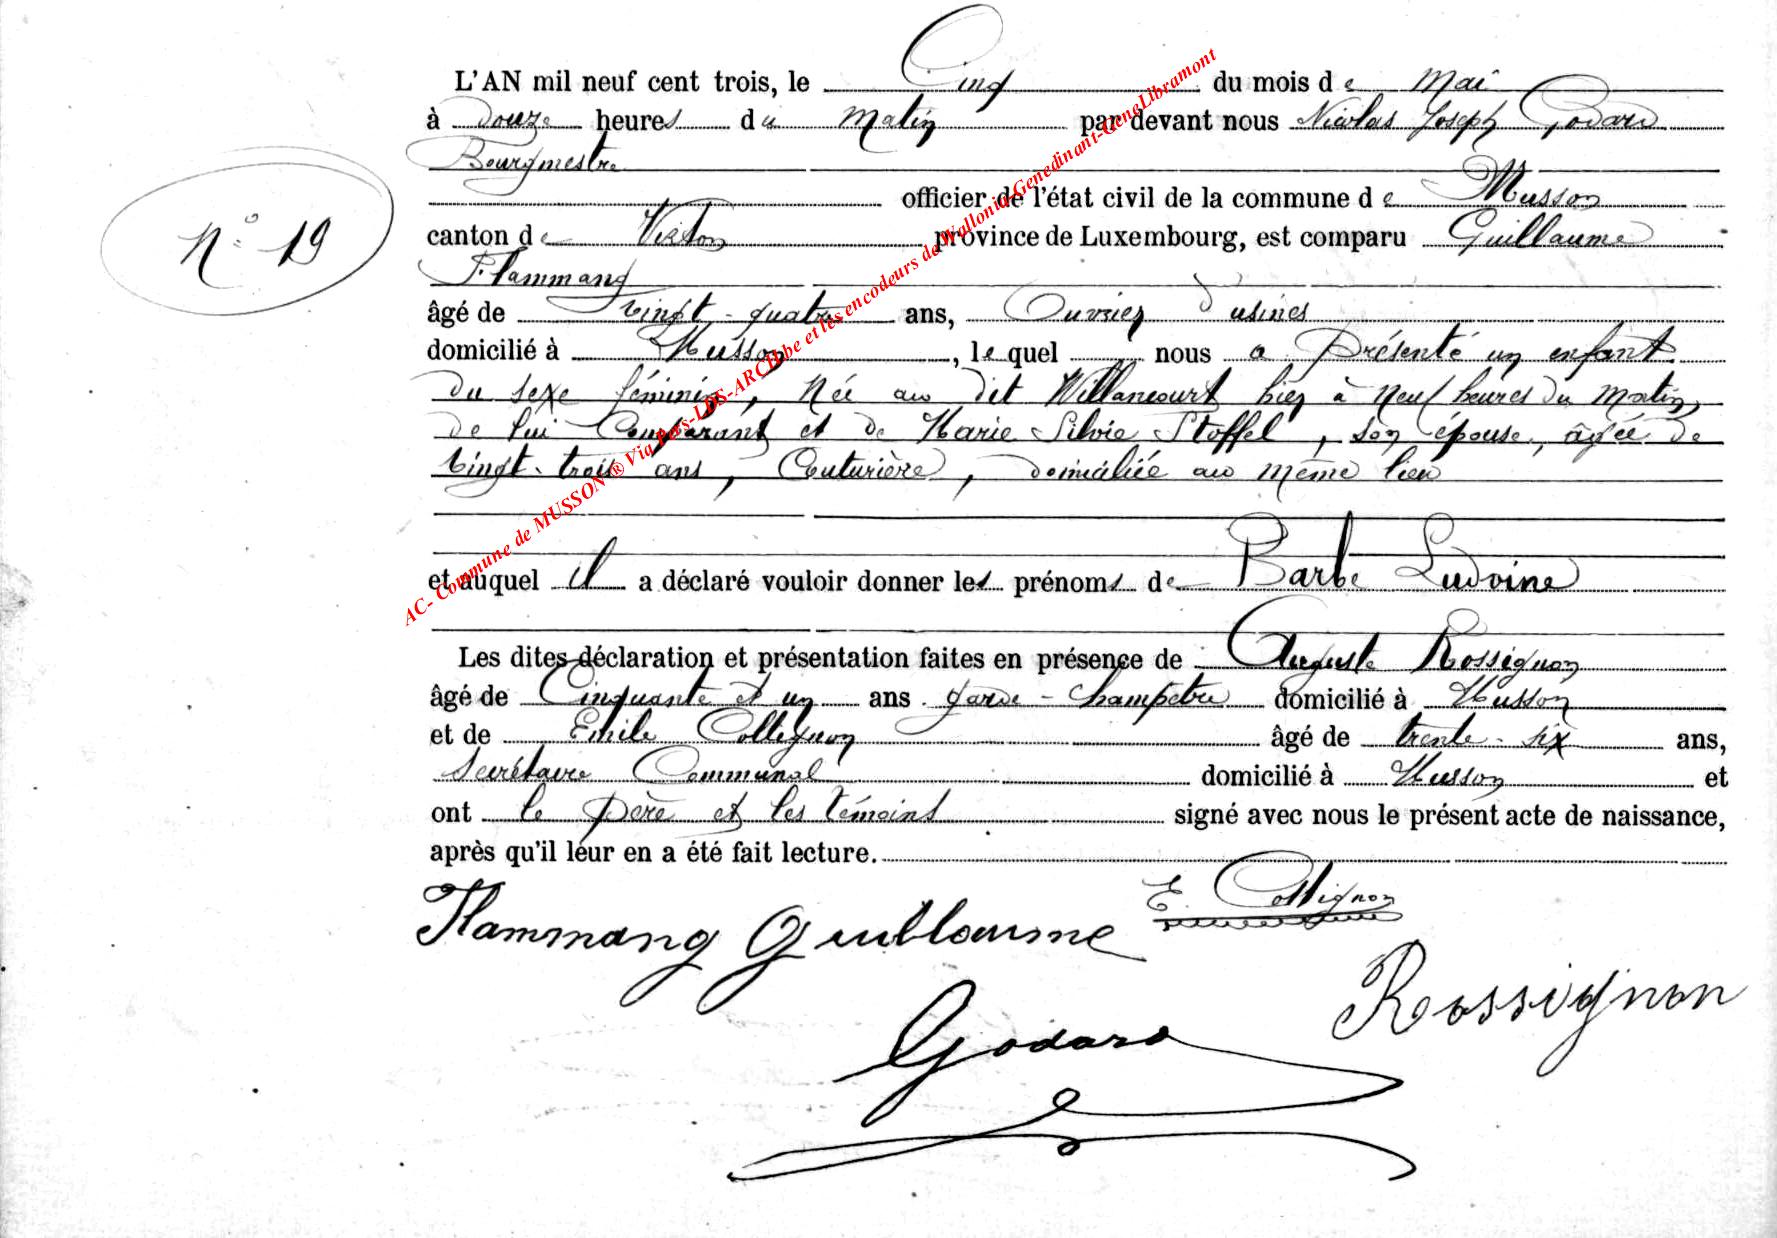 L'AN mil neuf cent trois, le Cinq du mois de Mai
à douze heures du Matin par devant nous Nicolas Joseph Godard
Bourgmestre
officier de l'état civil de la commune de Musson
N° 19
canton de Virton province de Luxembourg, est comparu Guillaume
Flammang
âgé de vingt-quatre ans, Ouvrier d'usines
domicilié à Musson, lequel nous a présenté un enfant
du sexe féminin, née au dit Willancourt hier à neuf heures du matin,
de lui Comparant et de Marie Silvie Stoffel, son épouse, âgée de
vingt-trois ans, Couturière, domiciliée au même lieu
et auquel il a déclaré vouloir donner les prénoms de Barbe Ludvine
Les dites déclaration et présentation faites en présence de Auguste Rossignon
âgé de Cinquante et un ans garde-Champêtre domicilié à Musson
et de Emile Collignon âgé de trente-six ans,
Secrétaire Communal domicilié à Musson et
ont le père et les témoins signé avec nous le présent acte de naissance,
après qu'il leur en a été fait lecture.
Flammang Guillaume
E. Collignon
Rossignon
Godard
AC- Commune de MUSSON ® Via Pars-LDS-ARCH.be et les encodeurs de Wallonia-Genedinant-GeneLibramont